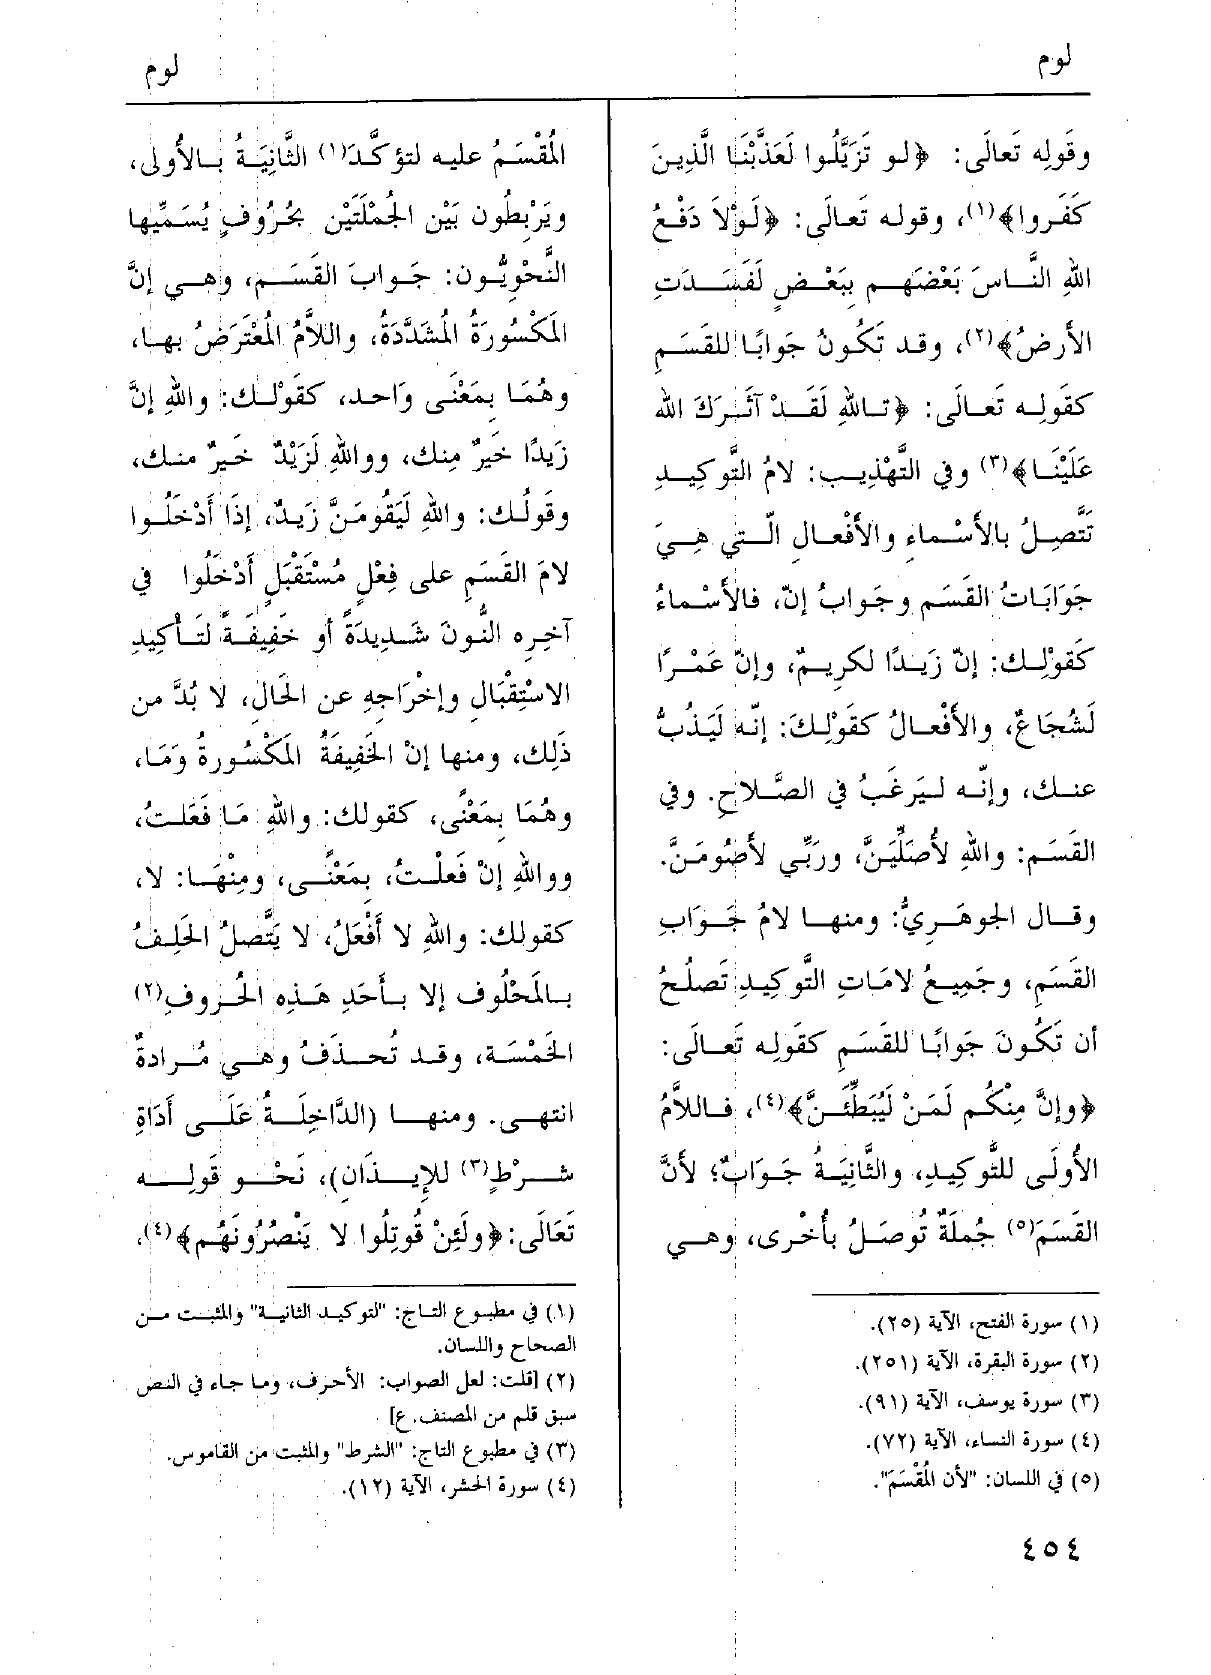 لوم
لوم
وقَولِه تَعالَى: ﴿لو تَزَيَّلُوا لَعَذَّبْنَا الَّذِينَ
كَفَروا﴾(١)، وقوله تَعالَى: ﴿لَوْلاَ دَفْعُ
اللهِ النَّاسَ بَعْضَهم بِبَعْضٍ لَفَسَدَتِ
الأرضُ﴾(٢)، وقد تَكُونُ جَوابًا للقَسَم
كقَولِه تَعالَى: ﴿تاللهِ لَقَدْ آثَرَكَ الله
عَلَيْنَا﴾(٣) وفي التَّهْذِيب: لامُ التَّوكِيدِ
تَتَّصِلُ بالأَسْماءِ والأَفْعالِ الّتي هِيَ
جَوَابَاتُ القَسَمِ وجَوابُ إنّ، فالأَسْماءُ
كقَوْلِك: إنّ زَيدًا لكريمٌ، وإنّ عَمْرًا
لَشُجَاعٌ، والأَفْعالُ كقَوْلِكَ: إنّه لَيَذُبُّ
عنك، وإنّه ليَرغَبُ في الصَّلاحِ. وفي
القَسَم: واللهِ لأُصَلِّيَنَّ، ورَبِّي لأَصُومَنَّ.
وقال الجوهَرِيُّ: ومنها لامُ جَوَابِ
القَسَمِ، وجَمِيعُ لامَاتِ التَّوكِيدِ تَصلُحُ
أن تَكُونَ جَوابًا للقَسَمِ كقَولِه تَعالَى:
﴿وإنَّ مِنْكُم لَمَنْ لَيُبَطِّئَنَّ﴾(٤)، فاللاَّمُ
الأُولَى للتَّوكِيدِ، والثَّانِيَةُ جَوَابٌ؛ لأَنَّ
القَسَمَ(٥) جُملَةٌ تُوصَلُ بأُخْرى، وهي
(١) سورة الفتح، الآية (٢٥).
(٢) سورة البقرة، الآية (٢٥١).
(٣) سورة يوسف، الآية (٩١).
(٤) سورة النساء، الآية (٧٢).
(٥) في اللسان: "لأن المُقْسَمَ".
المُقْسَمُ عليه لتؤكَّدَ(١) الثَّانِيَةُ بالأُولى،
ويَرْبِطُون بَيْن الجُمْلَتَيْن بحُرُوفٍ يُسَمِّيها
النَّحْوِيُّون: جَوابَ القَسَمِ، وهي إنَّ
المَكْسُورَةُ المُشَدَّدَةُ، واللاَّمُ المُعْتَرَضُ بها،
وهُمَا بِمَعْنَى وَاحد، كقَوْلِك: واللهِ إنَّ
زَيدًا خَيرٌ مِنك، وواللهِ لَزَيْدٌ خَيرٌ منك،
وقولُك: واللهِ لَيَقُومَنَّ زَيدٌ، إذَا أَدْخَلُوا
لامَ القَسَمِ على فِعْلٍ مُسْتَقْبَلٍ أَدْخَلُوا في
آخِرِه النُّونَ شَدِيدَةً أو خَفِيفَةً لتَأكِيدِ
الاسْتِقْبَالِ وإخْرَاجِهِ عن الحَالِ، لا بُدَّ من
ذَلِك، ومنها إنْ الخَفِيفَةُ المَكْسُورةُ وَمَا،
وهُمَا بِمَعْنًى، كقولك: واللهِ مَا فَعَلتُ،
وواللهِ إنْ فَعَلْتُ، بِمَعْنًى، ومِنْهَا: لا،
كقولك: واللهِ لا أَفْعَلُ، لا يَتَّصلُ الحَلِفُ
بالمَحْلُوف إلا بأَحَدِ هَذِه الحُروفِ(٢)
الخَمْسَة، وقد تُحذَفُ وهي مُرادةٌ
انتهى. ومنها (الدَّاخِلَةُ عَلَى أَدَاةِ
شرْطٍ(٣) للإيذَانِ)، نَحْو قَولِه
تَعَالَى: ﴿ولَئِنْ قُوتِلُوا لا يَنْصُرُونَهُم﴾(٤)،
(١) في مطبوع التاج: "لتوكيد الثانية" والمثبت من
الصحاح واللسان.
(٢) [قلت: لعل الصواب: الأحرف، وما جاء في النص
سبق قلم من المصنف. ع]
(٣) في مطبوع التاج: "الشرط" والمثبت من القاموس.
(٤) سورة الحشر، الآية (١٢).
٤٥٤